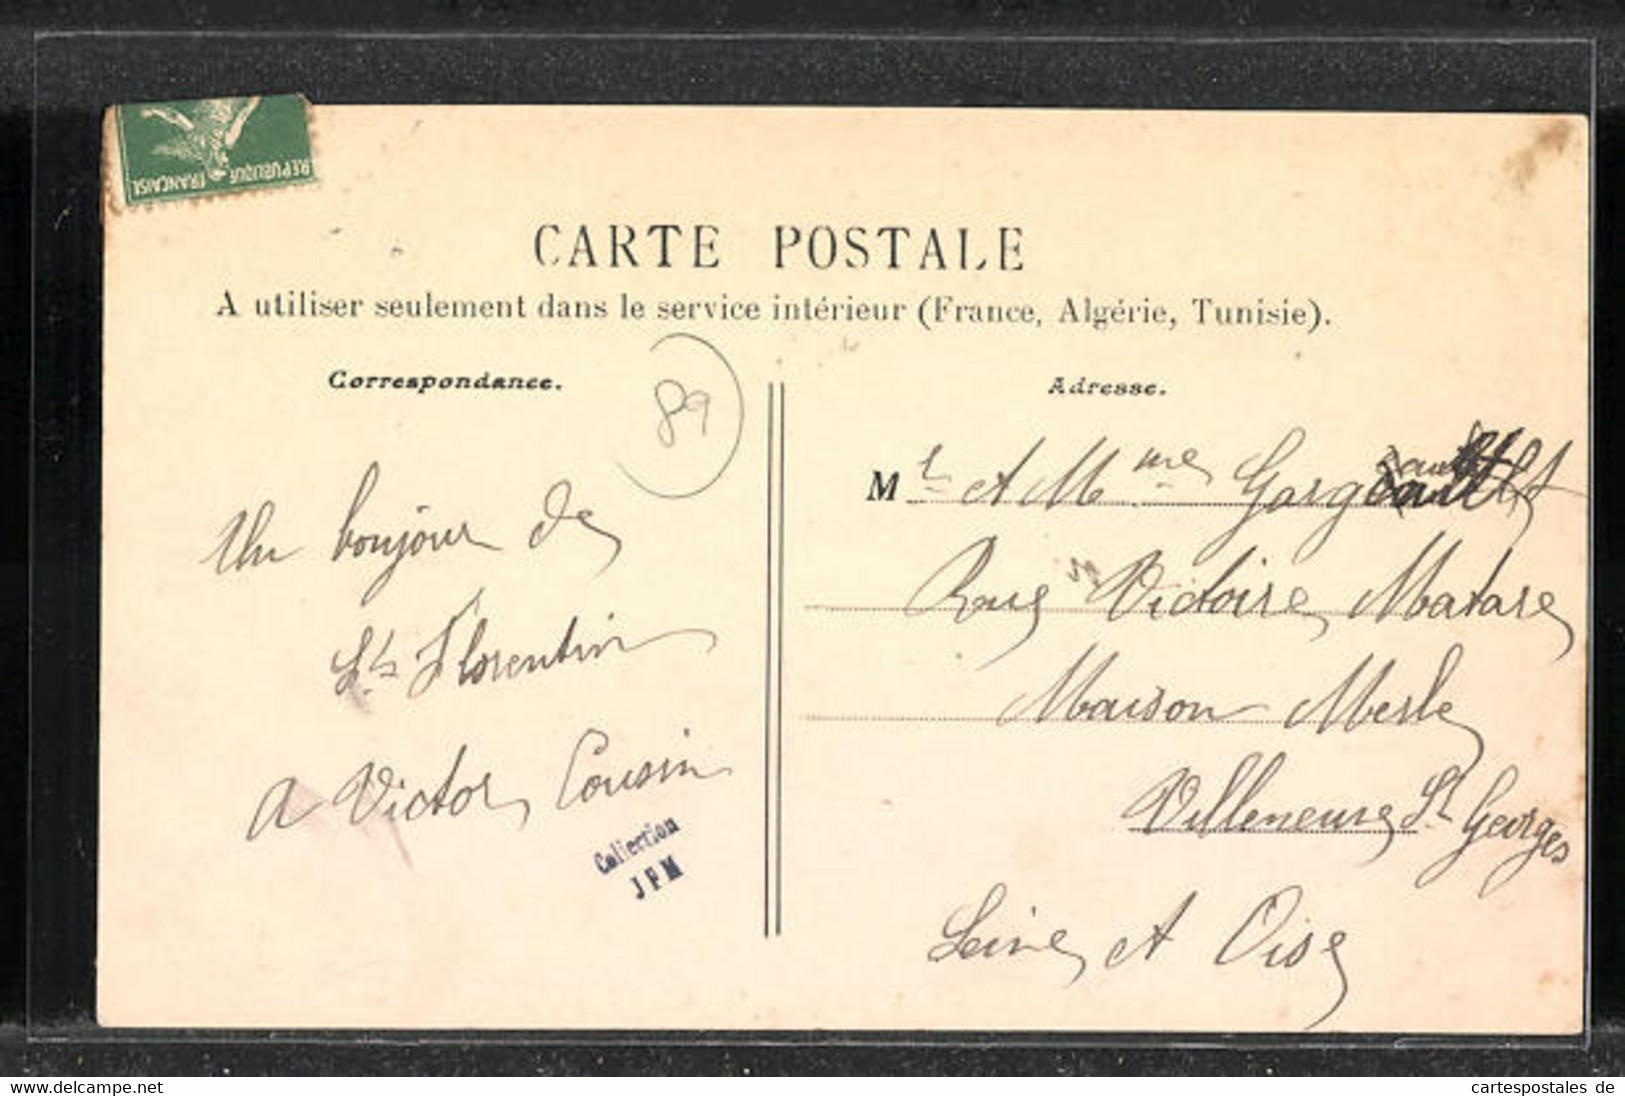 RÉPUBLIQUE FRANÇAISE
CARTE POSTALE
A utiliser seulement dans le service intérieur (France, Algérie, Tunisie).
Correspondance.
89
Un bonjour de
St Florentin
A Victor Cousin
Collection
JPM
Adresse.
Mr et Mme
Rue Victoire Matare
Maison Merle
Villeneuve St Georges
Seine et Oise
www.delcampe.net
cartespostales de